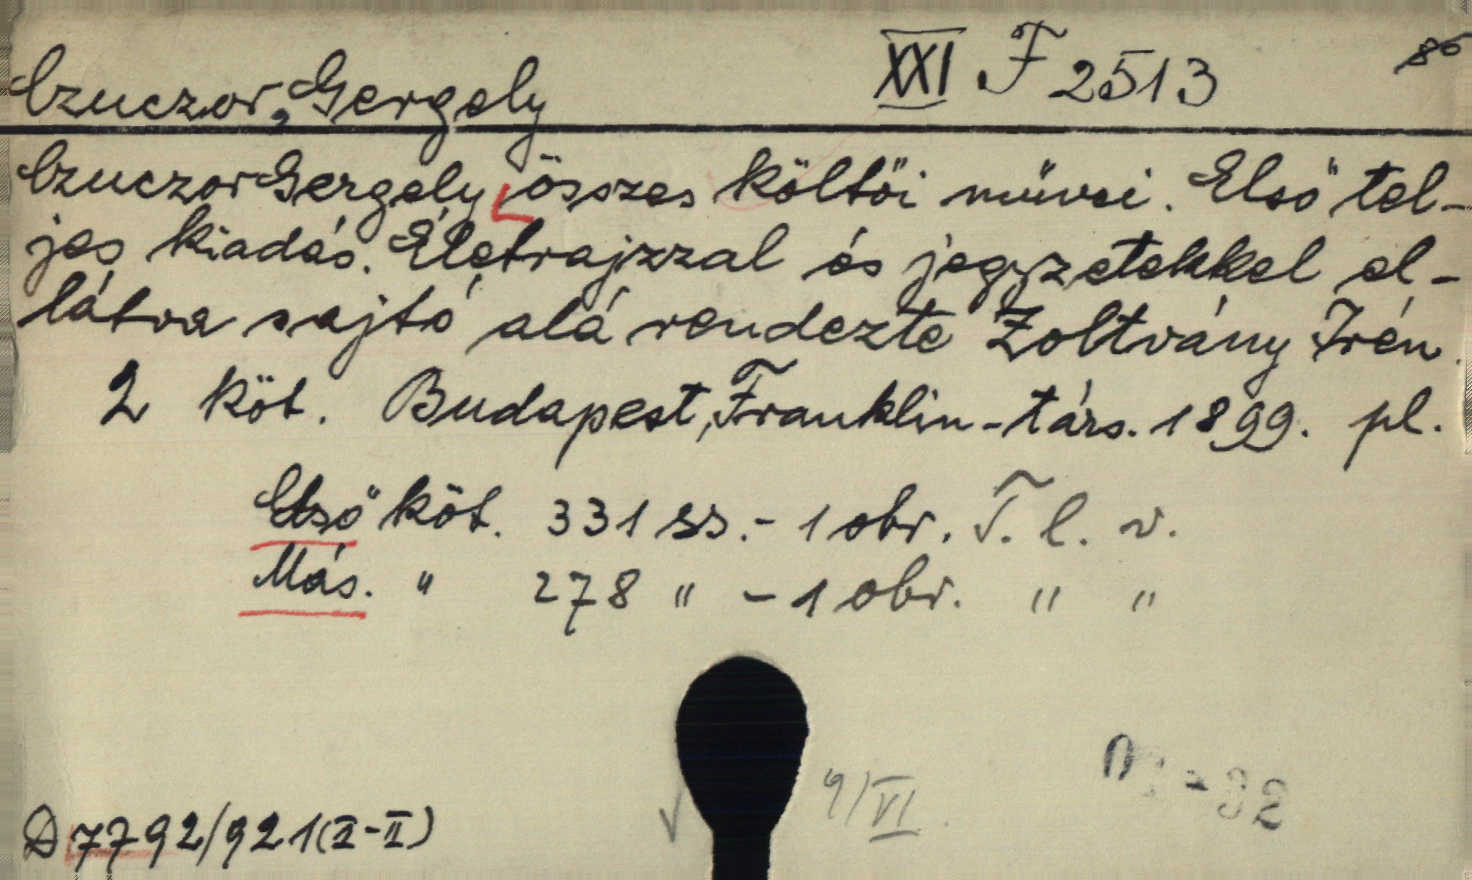 Czuczor, Gergely XXI F 2513 86
Czuczor Gergely összes költői művei. Első tel-
jes kiadás. Életrajzzal és jegyzetekkel el-
látva sajtó alá rendezte Zoltvány Irén.
2 köt. Budapest, Franklin-társ. 1899. pl.
Első köt. 331 ss. - 1 obr. T. l. v.
Más. " 278 " - 1 obr. " "
9/VI.
D 7792/921 (I-II)